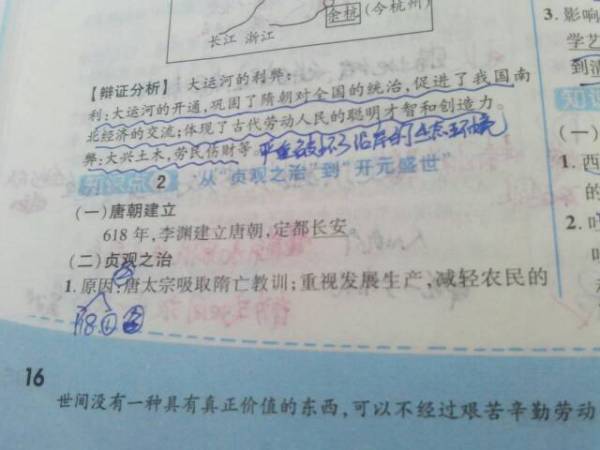 金杭
(今杭州)
长江 浙江
3.影响
学艺
到清
【辩证分析】 大运河的利弊:
利:大运河的开通,巩固了隋朝对全国的统治,促进了我国南
北经济的交流;体现了古代劳动人民的聪明才智和创造力。
弊:大兴土木,劳民伤财等 严重破坏了沿岸的生态环境
知识点2 从“贞观之治”到“开元盛世”
(一)唐朝建立
618年,李渊建立唐朝,定都长安
(二)贞观之治
1.原因:唐太宗吸取隋亡教训;重视发展生产,减轻农民的
P18.①②
知识
(一)
1.西
的
2.
16
世间没有一种具有真正价值的东西,可以不经过艰苦辛勤劳动